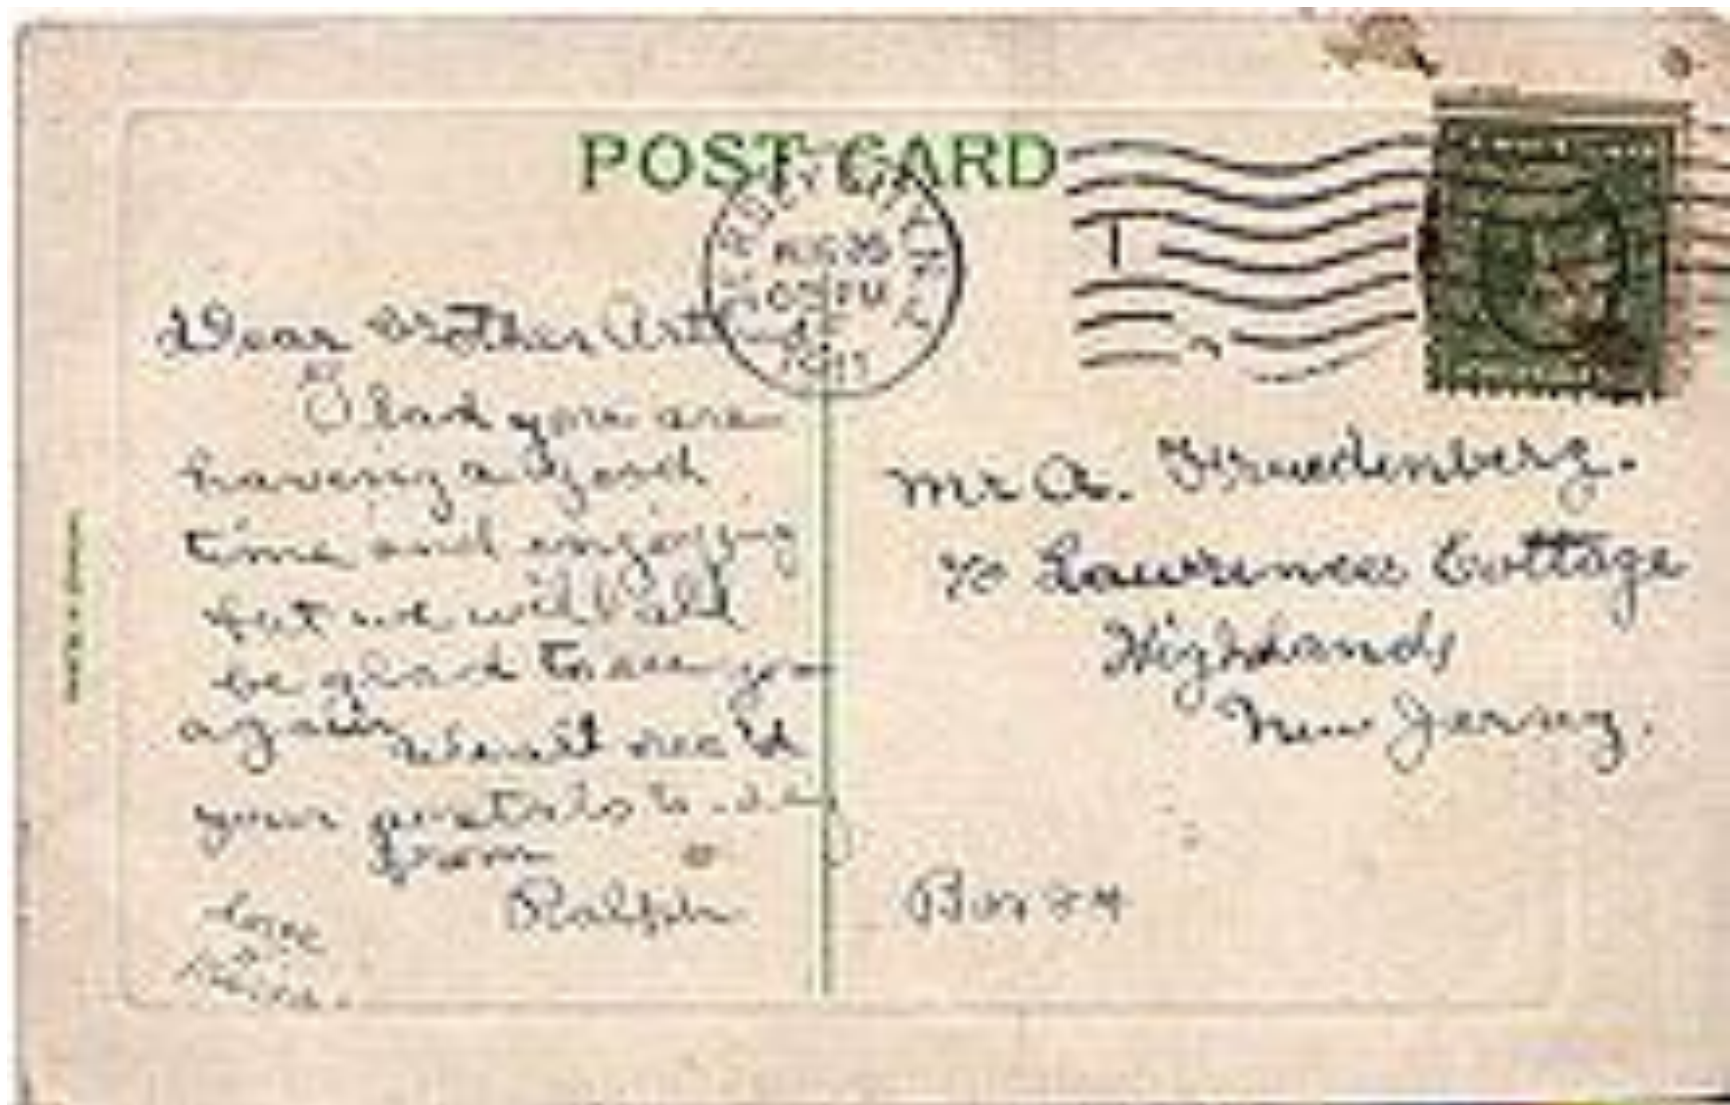 POST CARD
JERSEY CITY, N.J.
AUG 25
PM
1911
Dear Brother Arthur
Glad you are
having a good
time and enjoying
but we will all
be glad to see you
again
your postals
from
Ralph
Love
Mr A. Fruedenberg.
c/o Lawrence Cottage
Highlands
New Jersey.
Box